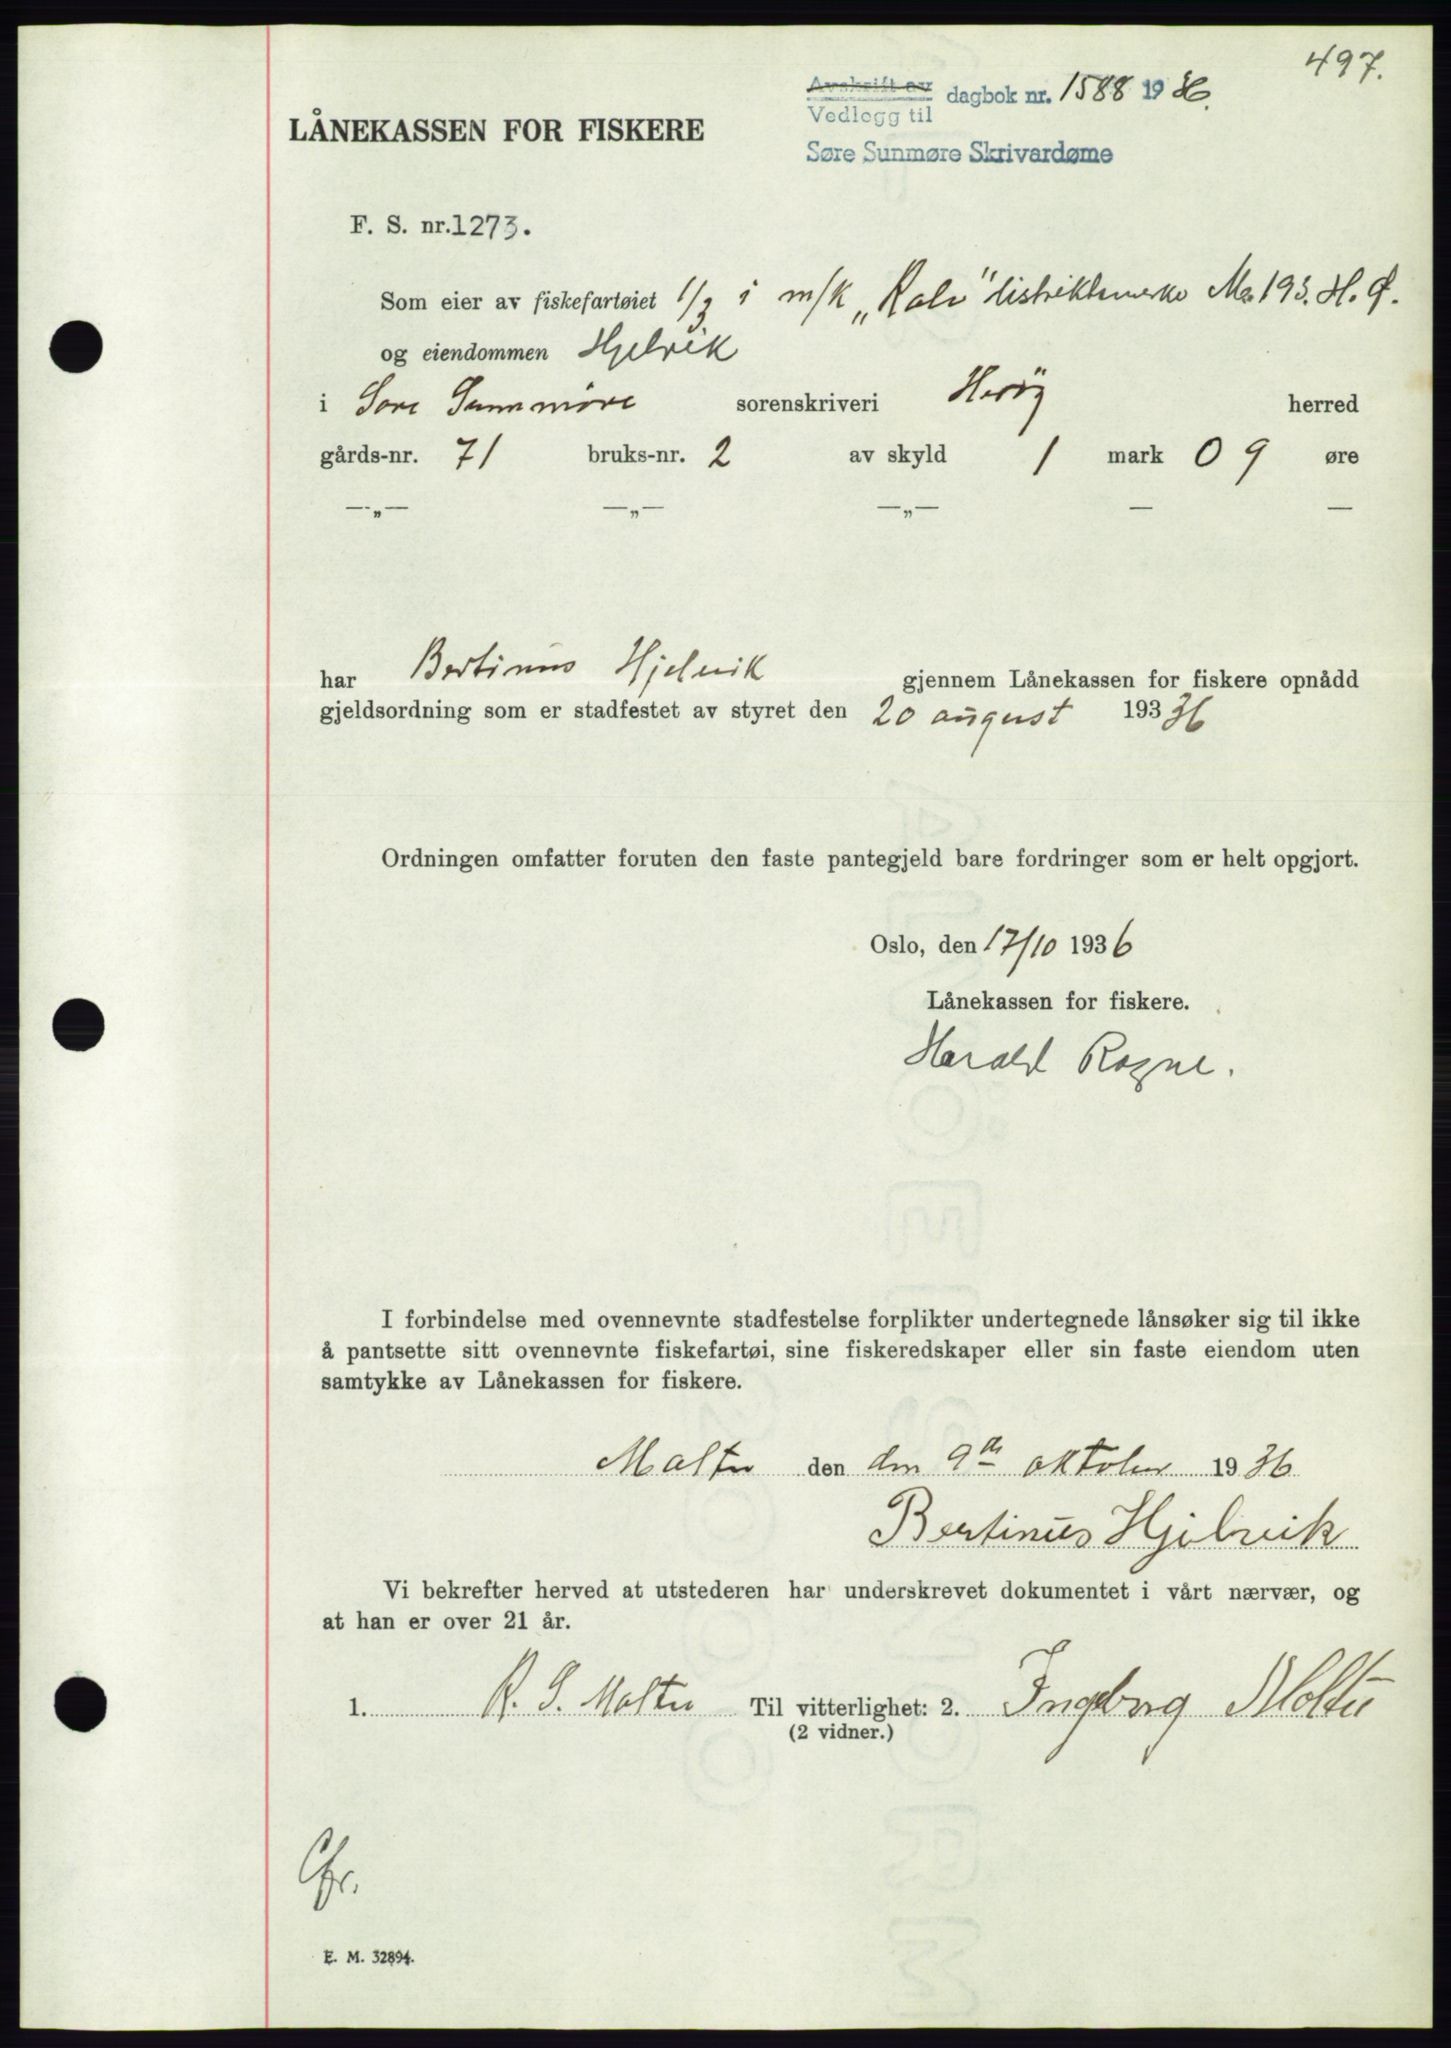 497.
Avskrift av
Vedlegg til dagbok nr. 1588 1936.
Søre Sunmøre Skrivardøme
LÅNEKASSEN FOR FISKERE
F. S. nr. 1273.
Som eier av fiskefartøiet 1/3 i m/k „Rolv" distriktsmerke M. 193. H. Ø.
og eiendommen Hjelvik
i Søre Sunnmöre sorenskriveri Heröy herred
gårds-nr. 71 bruks-nr. 2 av skyld 1 mark 09 øre
—„— —„— —„— — —
har Bertinus Hjelvik gjennem Lånekassen for fiskere opnådd
gjeldsordning som er stadfestet av styret den 20 august 193 36
Ordningen omfatter foruten den faste pantegjeld bare fordringer som er helt opgjort.
Oslo, den 17/10 1936
Lånekassen for fiskere.
Harald Rogne.
I forbindelse med ovennevnte stadfestelse forplikter undertegnede lånsøker sig til ikke
å pantsette sitt ovennevnte fiskefartøi, sine fiskeredskaper eller sin faste eiendom uten
samtykke av Lånekassen for fiskere.
Moltu den den 9de oktober 1936
Bertinus Hjelvik
Vi bekrefter herved at utstederen har underskrevet dokumentet i vårt nærvær, og
at han er over 21 år.
1. R. S. Moltu Til vitterlighet: 2. Ingeborg Moltu
(2 vidner.)
Cfr.
E. M. 32894.